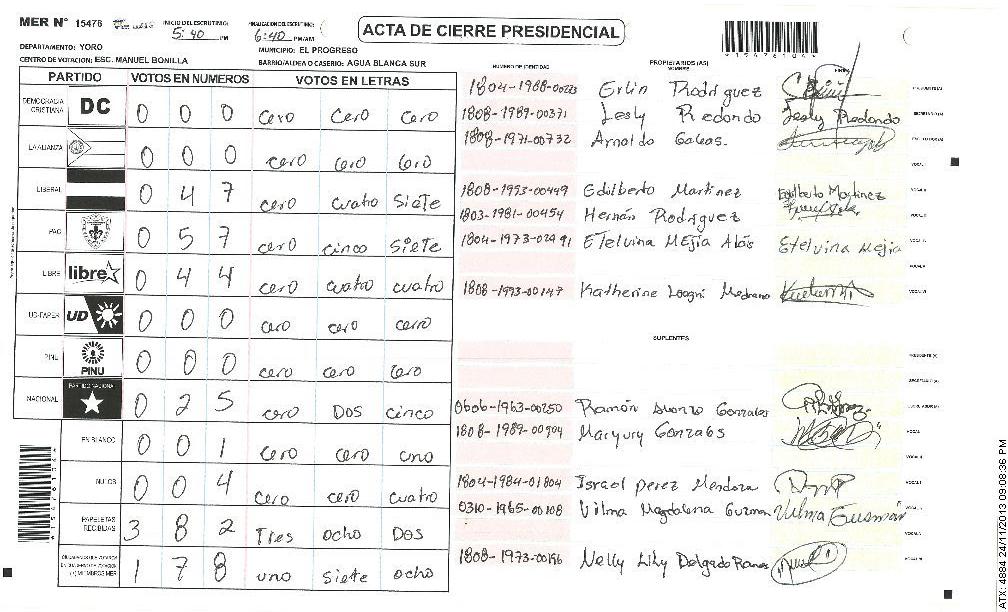 MER N° 15476 INICIO DEL ESCRUTINIO: 5:40 PM FINALIZACION DEL ESCRUTINIO: 6:40 PM/AM ACTA DE CIERRE PRESIDENCIAL
DEPARTAMENTO: YORO MUNICIPIO: EL PROGRESO
CENTRO DE VOTACION: ESC. MANUEL BONILLA BARRIO/ALDEA O CASERIO: AGUA BLANCA SUR
PARTIDO VOTOS EN NUMEROS VOTOS EN LETRAS
DEMOCRACIA CRISTIANA DC 0 0 0 cero cero cero
LA ALIANZA 0 0 0 cero cero cero
LIBERAL 0 4 7 cero cuatro siete
PAC 0 5 7 cero cinco siete
LIBRE libre 0 4 4 cero cuatro cuatro
UD-FAPER UD 0 0 0 cero cero cero
PINU PINU 0 0 0 cero cero cero
NACIONAL PARTIDO NACIONAL 0 2 5 cero DOS cinco
EN BLANCO 0 0 1 cero cero uno
NULOS 0 0 4 cero cero cuatro
PAPELETAS RECIBIDAS 3 8 2 Tres ocho Dos
1 7 8 uno siete ocho
NUMERO DE IDENTIDAD PROPIETARIOS (AS) NOMBRE FIRMA
1804-1988-00223 Erlin Rodriguez
1808-1989-00371 Lesly Redondo Lesly Redondo
1808-1971-00732 Arnaldo Galeas.
1808-1953-00449 Edilberto Martinez Edilberto Martinez
1803-1981-00454 Hernán Rodriguez
1804-1973-02491 Etelvina Mejia Etelvina Mejia
1808-1993-00147 Katherine Medrano
SUPLENTES
0606-1963-00250 Ramón Alonzo Gonzales
1808-1989-00904 Maryury Gonzales
1804-1984-01804 Israel perez Mendoza
0310-1965-00108 Vilma Magdalena Guzman Vilma Gusman
1808-1973-00196 Nelly Lily Delgado Ramos
ATX: 4884 24/11/2013 09:08:36 PM